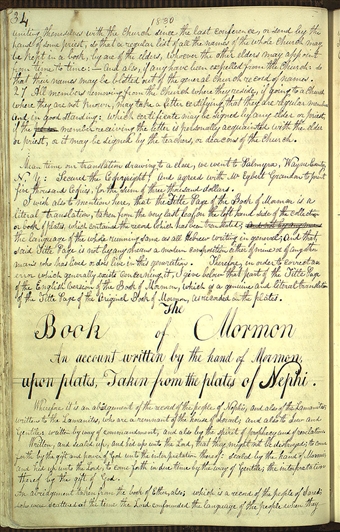 34
1830
uniting themselves with the Church since the last conference, or send by the
hand of some priest, so that a regular list of all the names of the whole Church may
be kept in a book, by one of the elders, whoever the other elders may appoint
from time to time: — and also, if any have been expelled from the Church, so
that their names may be blotted out of the general Church record of names.
27. All members removing from the Church where they reside, if going to a Church
where they are not known, may take a letter certifying that they are regular members
and in good standing: which certificate may be signed by any elder or priest,
if the member receiving the letter is personally acquainted with the elder
or priest, or it may be signed by the teachers, or deacons of the Church.
Mean time our translation drawing to a close, we went to Palmyra, Wayne County,
N. Y: Secured the Copyright; and agreed with Mr Egbert Grandin to print
five thousand Copies, for the sum of three thousand dollars.
I wish also to mention here, that the Title Page of the Book of Mormon is a
literal translation, taken from the very last leaf, on the left hand side of the collection
or book of plates, which contained the record which has been translated;
the language of the whole running same as all Hebrew writing in general; And that,
said Title Page is not by any means a modern composition either of mine or of any other
man's who has lived or does live in this generation. Therefore, in order to correct an
error which generally exists concerning it, I give below that part of the Title Page
of the English Version of the Book of Mormon, which is a genuine and literal translation
of the Title Page of the Original Book of Mormon, as recorded on the plates.
The
Book of Mormon
An account written by the hand of Mormon,
upon plates, Taken from the plates of Nephi.
Wherefore it is an abridgment of the record of the people of Nephi; and also of the Lamanites;
written to the Lamanites, who are a remnant of the house of Israel; and also to Jew and
Gentile: written by way of commandment, and also by the spirit of prophesy and of revelation.
Written, and sealed up, and hid up unto the Lord, that they might not be destroyed; to come
forth by the gift and power of God unto the interpretation thereof: sealed by the hand of Moroni
and hid up unto the Lord, to come forth in due time by the way of Gentile; the interpretation
thereof by the gift of God.
An abridgment taken from the book of Ether, also; which is a record of the people of Jared;
who were scattered at the time the Lord confounded the language of the people when they